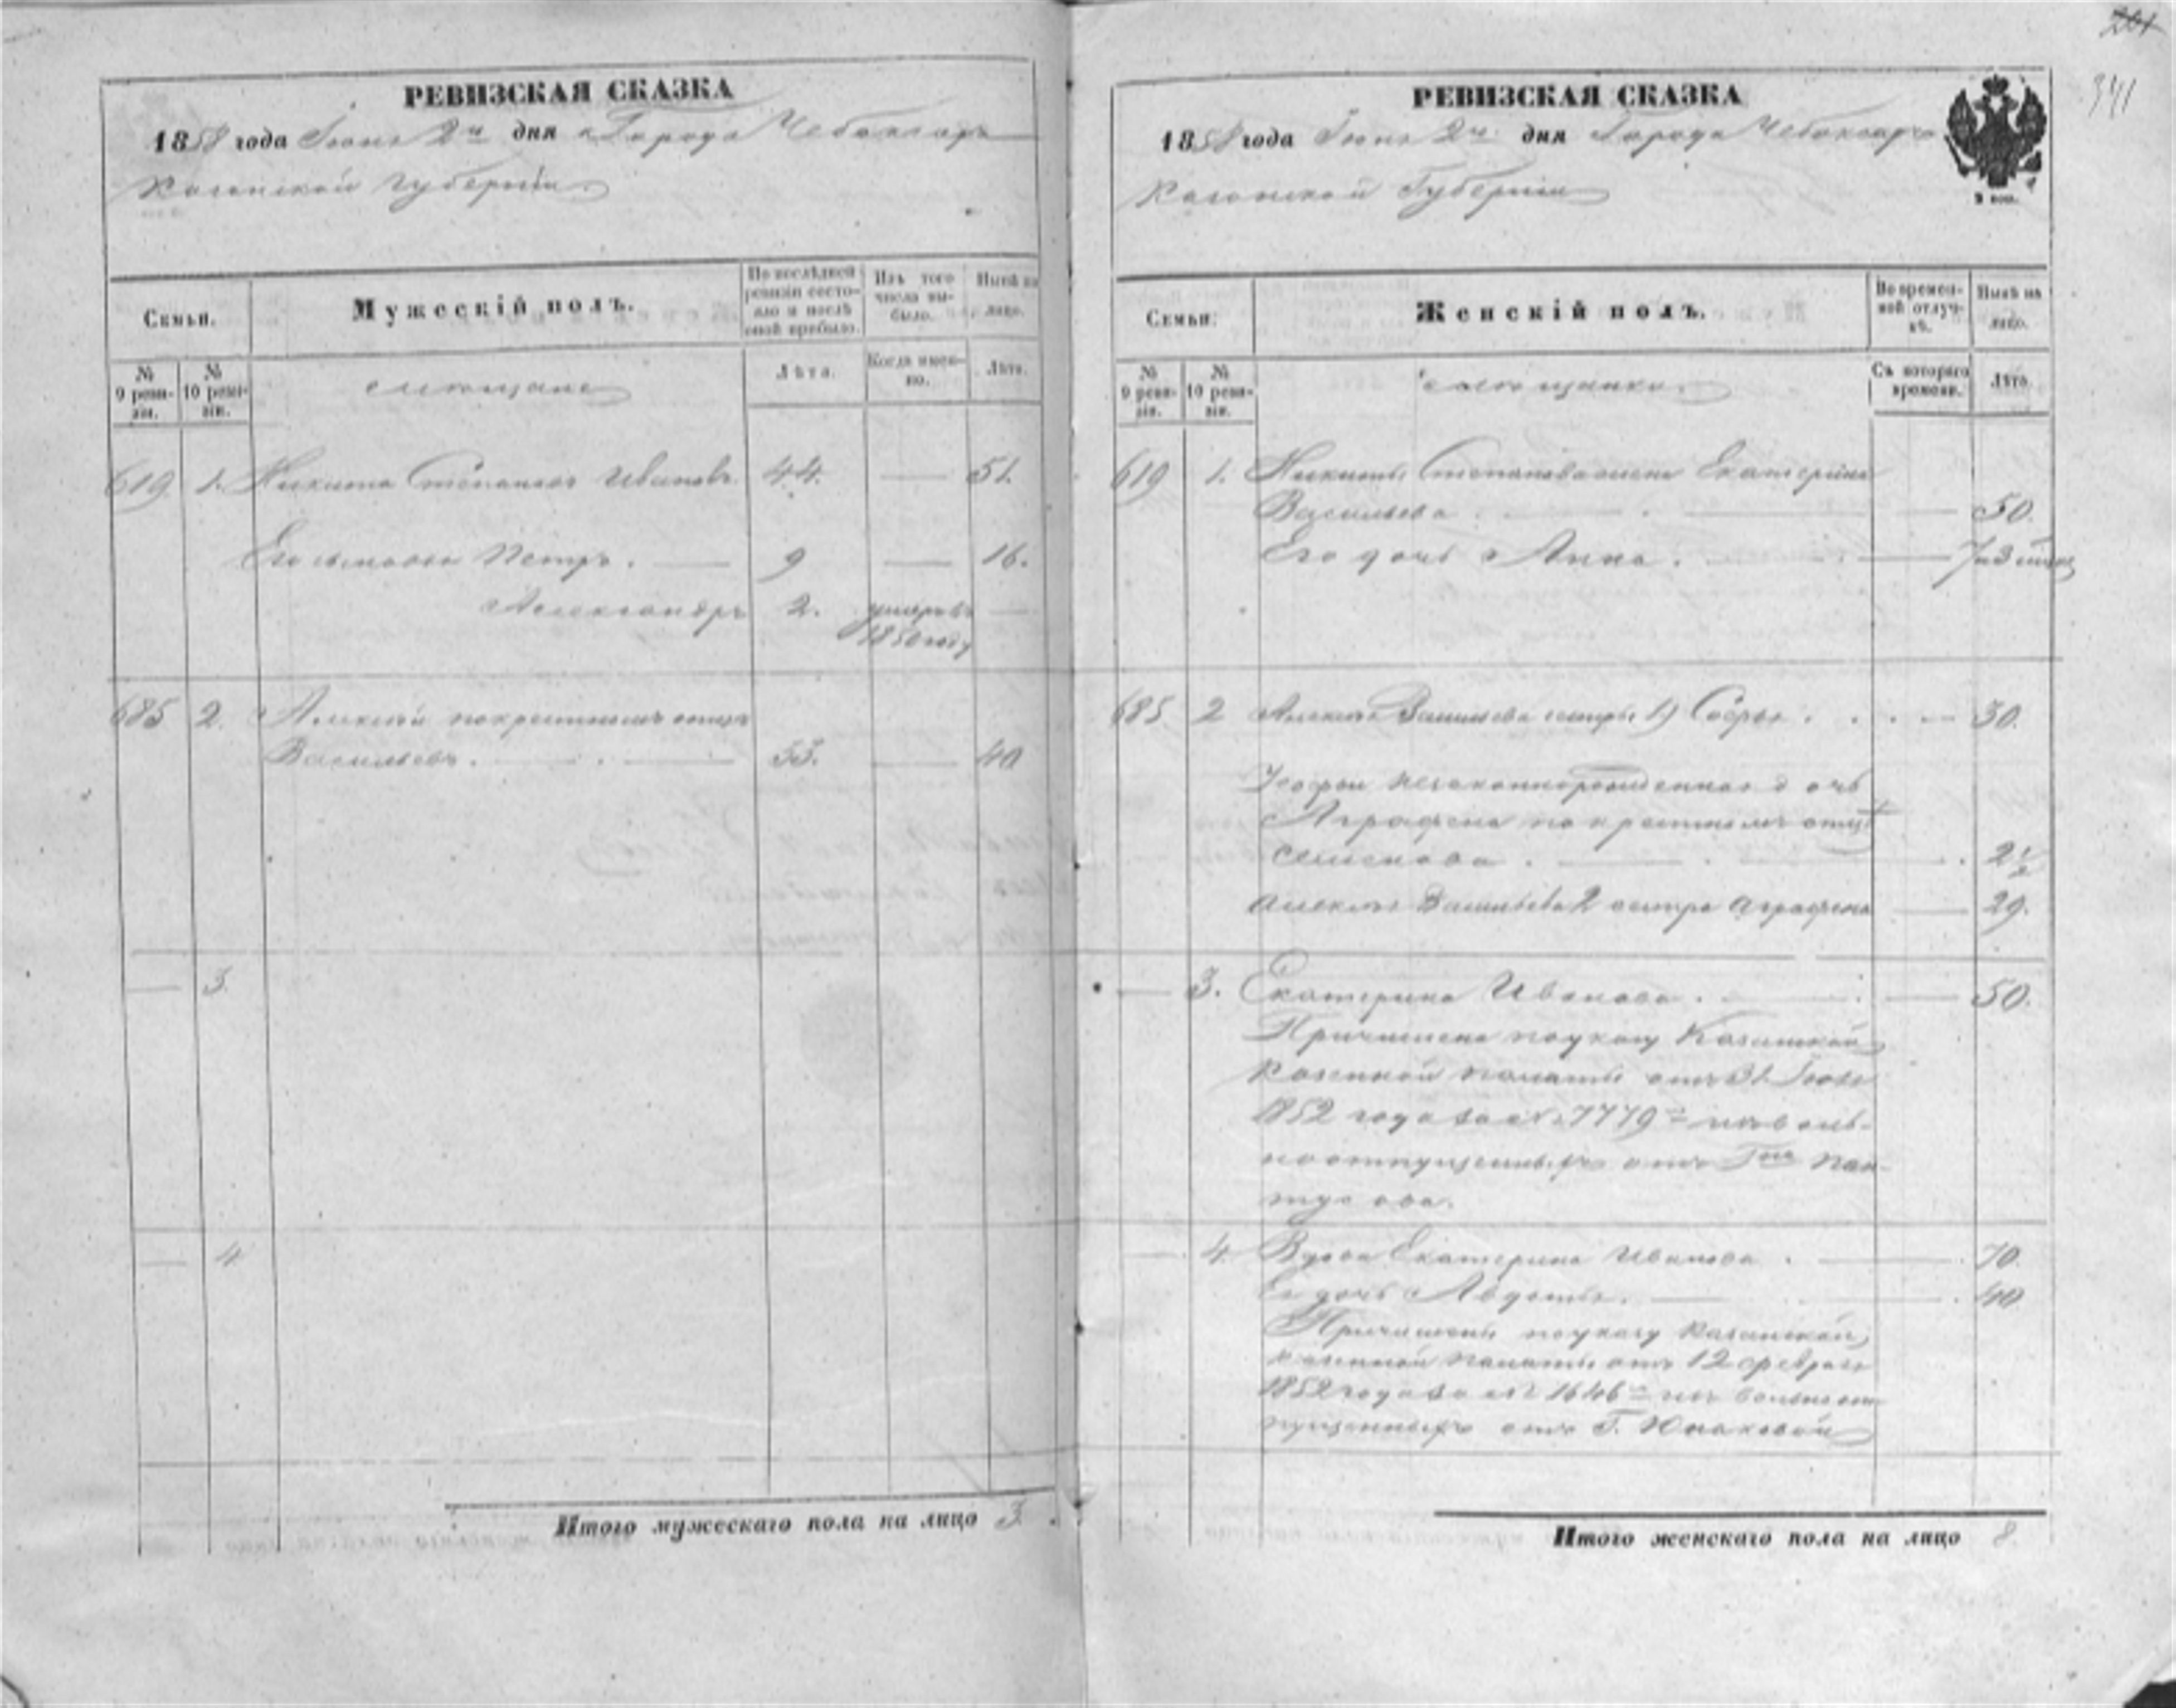 201
341
РЕВИЗСКАЯ СКАЗКА
1858 года Іюня 2го дня Города Чебоксаръ
Казанской Губерніи
Семьи.
Мужескій полъ.
По послѣдней ревизіи состояло и послѣ оной прибыло.
Изъ того числа выбыло.
Нынѣ на лицо.
№ 9 ревизіи.
№ 10 ревизіи.
мещане
Лѣта.
Когда именно.
Лѣта.
619 1. Никита Степановъ Ивановъ 44. — 51.
Его сыновья Петръ. — 9 — 16.
Александръ 2. умеръ въ —
1850 году
685 2. Алексей по крестному отцу
Васильевъ. — 33. — 40
— 3.
— 4
Итого мужескаго пола на лицо 3.
РЕВИЗСКАЯ СКАЗКА
1858 года Іюня 2го дня Города Чебоксаръ
Казанской Губерніи
2 коп.
Семьи.
Женскій полъ.
Во временной отлучкѣ.
Нынѣ на лицо.
№ 9 ревизіи.
№ 10 ревизіи.
мещанки
Съ котораго времени.
Лѣта.
619 1. Никиты Степанова жена Екатерина
Васильева. — 50.
Его дочь Анна. —
685 2 Алексея Васильева сестры 1) Софья. — 30.
У Софьи незаконнорожденная дочь
Аграфена по крестному отцу
Семенова. — 2 1/2
Алексея Васильева 2 сестра Аграфена — 29.
— 3. Екатерина Иванова. — 50.
Причислена по указу Казанской
Казенной палаты отъ 31
1852 года за № 7779м изъ воль-
ноотпущенныхъ отъ Гна
— 4. Вдова Екатерина Иванова. — 70.
Ея дочь Авдотья. — 40
Причислены по указу Казанской
казенной палаты отъ 12 февраля
1852 года за № 1646м изъ вольноот-
пущенныхъ отъ Г. Юнаковой
Итого женскаго пола на лицо 8